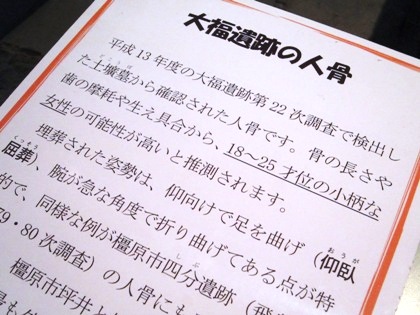 大福遺跡の人骨
平成13年度の大福遺跡第22次調査で検出し
た土壙墓から確認された人骨です。骨の長さや
歯の摩耗や生え具合から、18～25才位の小柄な
女性の可能性が高いと推測されます。
埋葬された姿勢は、仰向けで足を曲げ（仰臥
屈葬）、腕が急な角度で折り曲げてある点が特
的で、同様な例が橿原市四分遺跡（飛
79・80次調査）の人骨にも
橿原市坪井